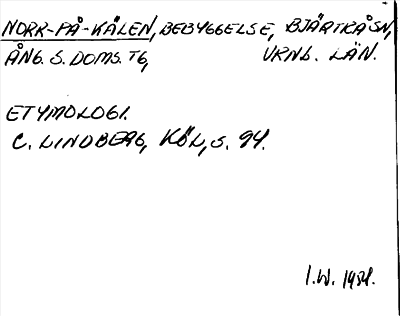 NORR-PÅ-KÅLEN, BEBYGGELSE, BJÄRTRÅ SN,
ÅNG. S. DOMS. TG, VRNL. LÄN.
ETYMOLOGI.
C. LINDBERG, KÖL, S. 94.
I.W. 1954.